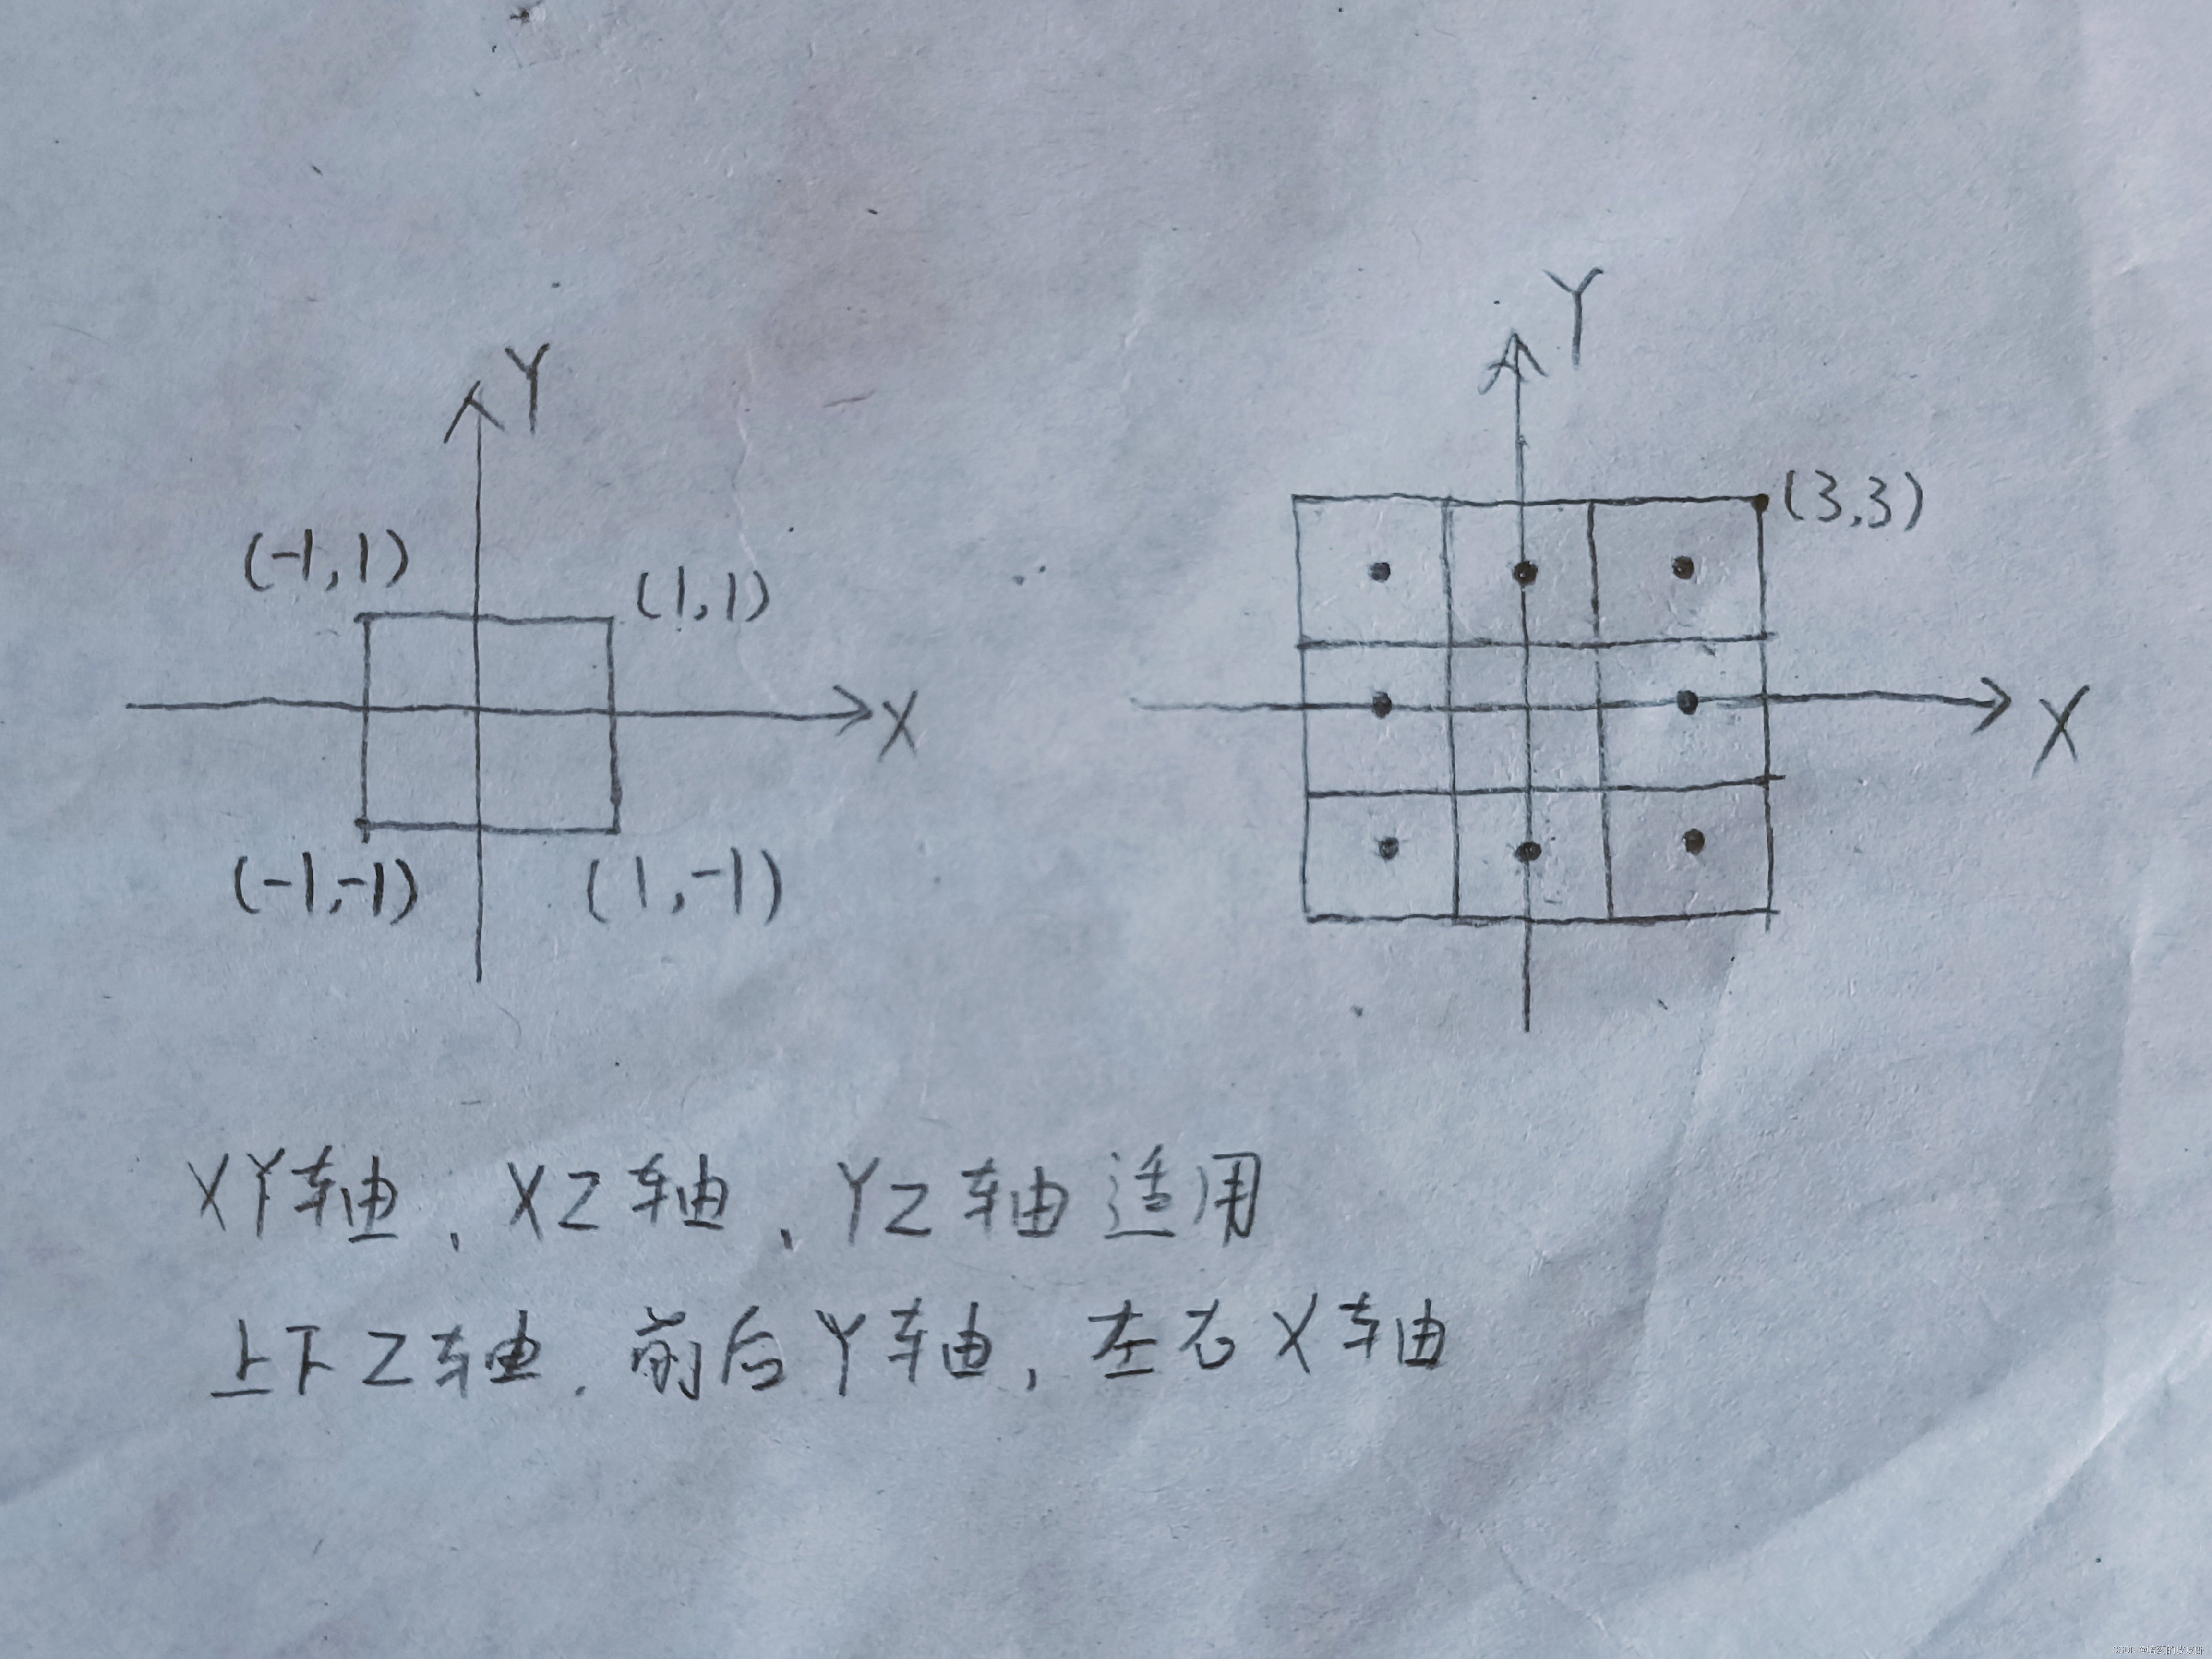 Y
Y
(3,3)
(-1,1)
(1,1)
X
X
(-1,-1)
(1,-1)
XY轴、XZ轴、YZ轴适用
上下Z轴、前后Y轴,左右X轴